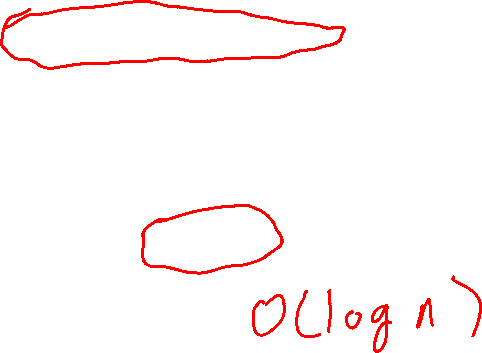 O(log n)